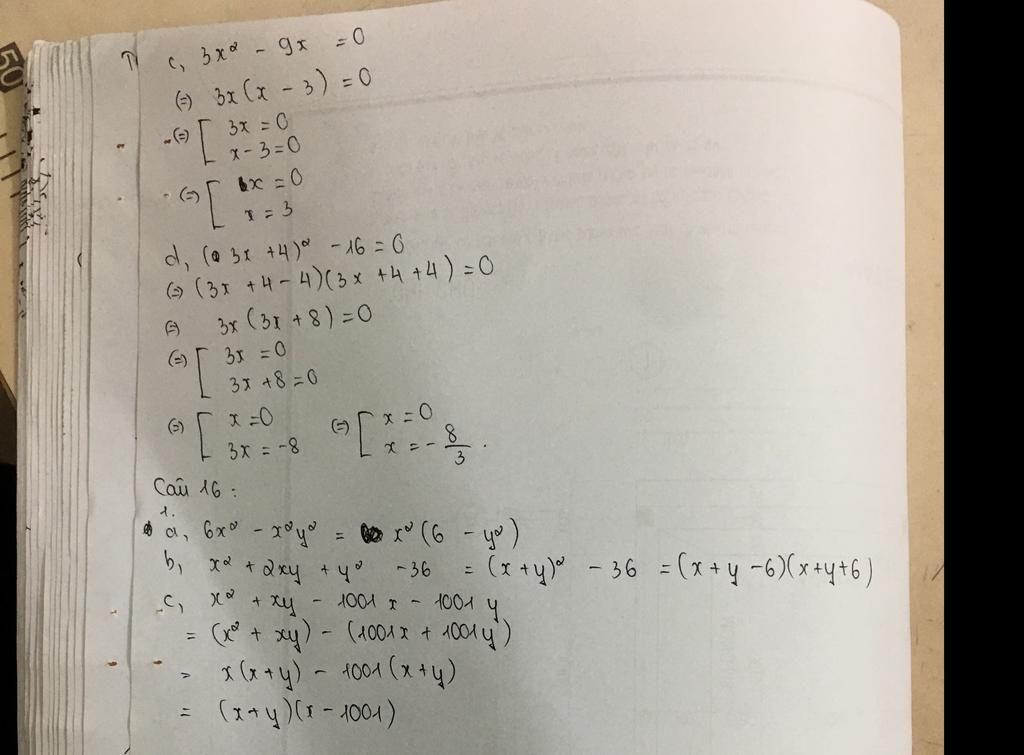 c, 3x² - 9x = 0
(=) 3x(x - 3) = 0
(=) [ 3x = 0
x - 3 = 0
(=) [ x = 0
x = 3
d, (3x + 4)² - 16 = 0
(=) (3x + 4 - 4)(3x + 4 + 4) = 0
(=) 3x(3x + 8) = 0
(=) [ 3x = 0
3x + 8 = 0
(=) [ x = 0 (=) [ x = 0
3x = -8 x = -8/3.
Câu 16:
1.
a, 6x² - x²y² = x²(6 - y²)
b, x² + 2xy + y² - 36 = (x + y)² - 36 = (x + y - 6)(x + y + 6)
c, x² + xy - 1001x - 1001y
= (x² + xy) - (1001x + 1001y)
= x(x + y) - 1001(x + y)
= (x + y)(x - 1001)